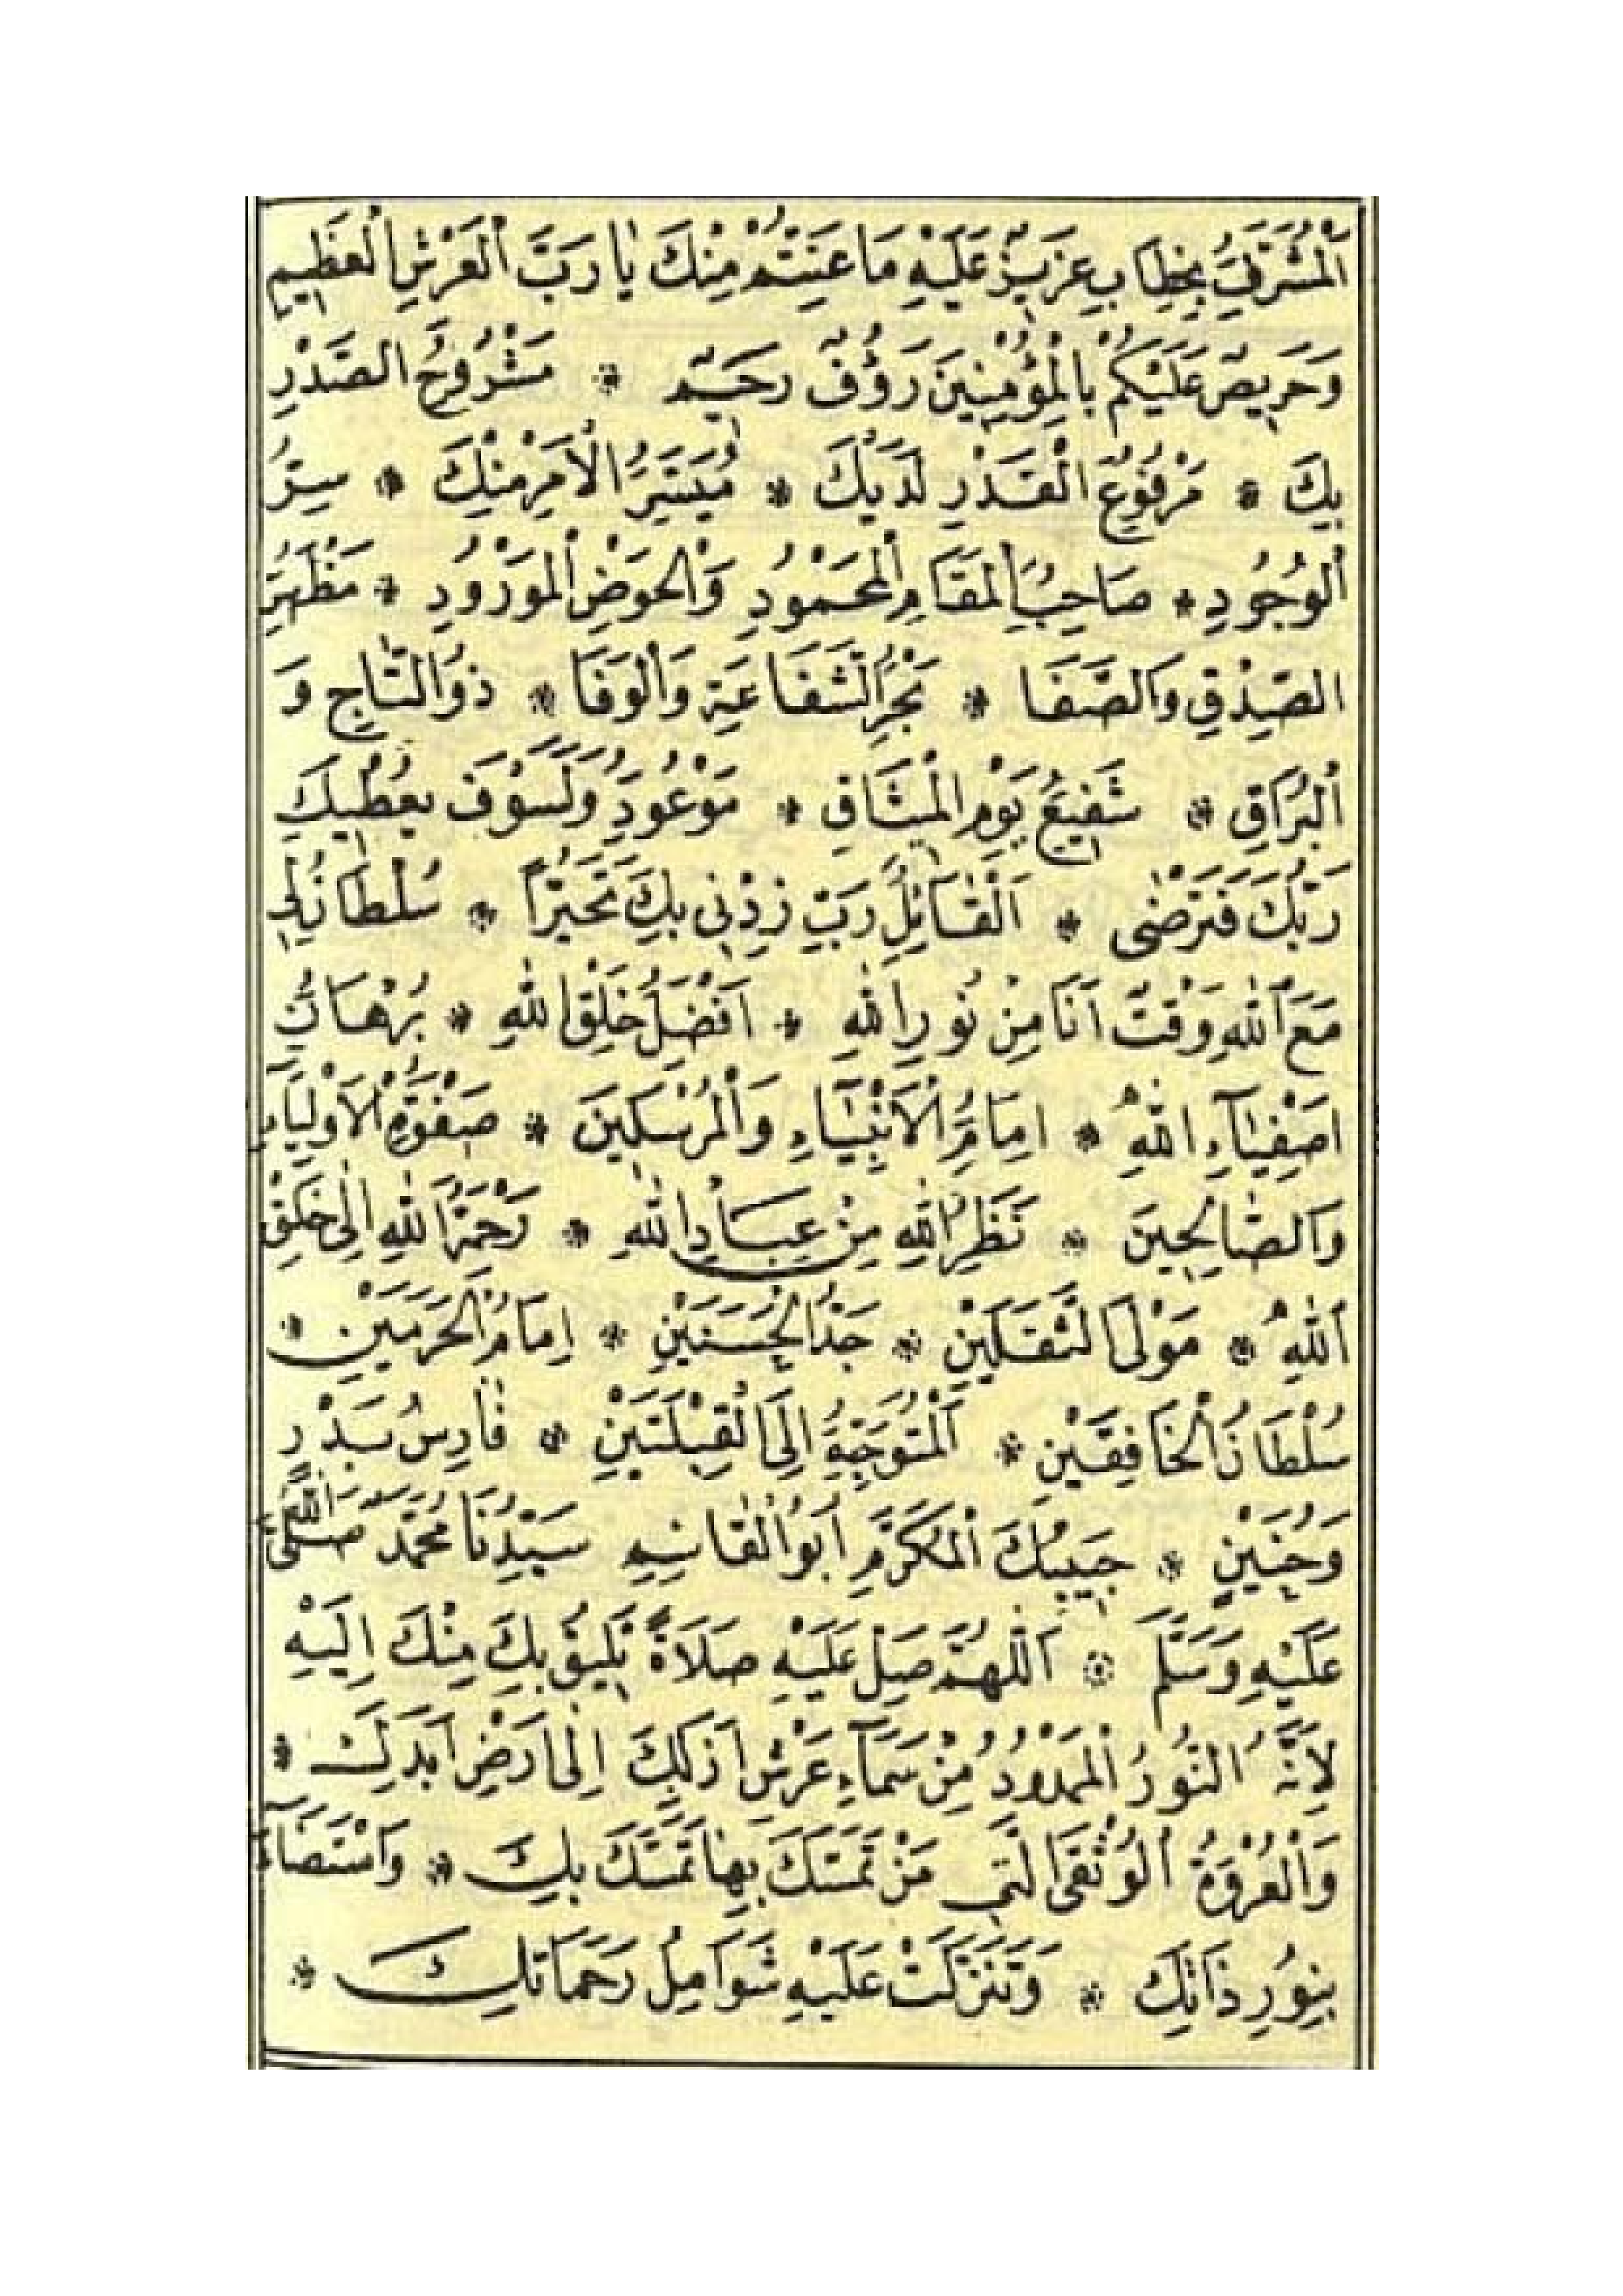 اَلْمُشَرَّفِ بِخِطَابِ عَزِيزٌ عَلَيْهِ مَا عَنِتُّمْ مِنْكَ يَا رَبَّ الْعَرْشِ الْعَظِيمِ
وَحَرِيصٌ عَلَيْكُمْ بِالْمُؤْمِنِينَ رَؤُفٌ رَحِيمٌ * مَشْرُوحُ الصَّدْرِ
بِكَ * مَرْفُوعُ الْقَدْرِ لَدَيْكَ * مُيَسَّرُ الْاَمْرِ مِنْكَ * سِرُّ
الْوُجُودِ * صَاحِبُ الْمَقَامِ الْمَحْمُودِ وَالْحَوْضِ الْمَوْرُودِ * مَظْهَرُ
الصِّدْقِ وَالصَّفَا * بَحْرُ الشَّفَاعَةِ وَالْوَفَا * ذُو التَّاجِ وَ
الْبُرَاقِ * شَفِيعُ يَوْمِ الْمِيثَاقِ * مَوْعُودِ وَلَسَوْفَ يُعْطِيكَ
رَبُّكَ فَتَرْضٰى * اَلْقَائِلُ رَبِّ زِدْنِي بِكَ تَحَيُّرًا * سُلْطَانُ لِي
مَعَ اللهِ وَقْتٌ اَنَا مِنْ نُورِ اللهِ * اَفْضَلُ خَلْقِ اللهِ * بُرْهَانُ
اَصْفِيَآءِ اللهِ * اِمَامُ الْاَنْبِيَآءِ وَالْمُرْسَلِينَ * صَفْوَةُ الْاَوْلِيَآءِ
وَالصَّالِحِينَ * نَظَرُ اللهِ مِنْ عِبَادِ اللهِ * رَحْمَةُ اللهِ اِلٰى خَلْقِ
اللهِ * مَوْلَى الثَّقَلَيْنِ * جَدُّ الْحَسَنَيْنِ * اِمَامُ الْحَرَمَيْنِ *
سُلْطَانُ الْخَافِقَيْنِ * اَلْمُتَوَجِّهُ اِلَى الْقِبْلَتَيْنِ * فَارِسُ بَدْرٍ
وَحُنَيْنٍ * حَبِيبُكَ الْمُكَرَّمِ اَبُو الْقَاسِمِ سَيِّدُنَا مُحَمَّدٌ صَلَّى اللهُ
عَلَيْهِ وَسَلَّمَ * اَللّٰهُمَّ صَلِّ عَلَيْهِ صَلَاةً تَلِيقُ بِكَ مِنْكَ اِلَيْهِ
لِاَنَّهُ النُّورُ الْمَمْدُودُ مِنْ سَمَآءِ عَرْشِ اَزَلِكَ اِلٰى اَرْضِ اَبَدِكَ *
وَالْعُرْوَةُ الْوُثْقَى الَّتِي مَنْ تَمَسَّكَ بِهَا تَمَسَّكَ بِكَ * وَاسْتَضَآءَ
بِنُورِ ذَاتِكَ * وَتَنَزَّلَتْ عَلَيْهِ شَوَامِلُ رَحَمَاتِكَ *